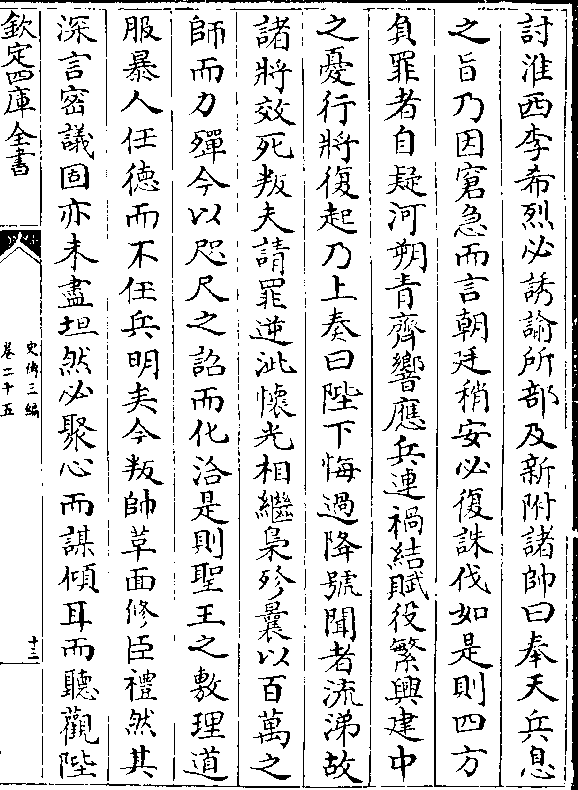 討淮西李希烈必誘諭所部及新附諸帥曰奉天兵息
之旨乃因窘急而言朝廷稍安必復誅伐如是則四方
負罪者自疑河朔青齊響應兵連禍結賦役繁興建中
之憂行將復起乃上奏曰陛下悔過降號聞者流涕故
諸將效死叛夫請罪逆泚懷光相繼梟殄曩以百萬之
師而力殫今以咫尺之詔而化洽是則聖王之敷理道
服暴人任德而不任兵明矣今叛帥革面修臣禮然其
深言密議固亦未盡坦然必聚心而謀傾耳而聽觀陛
欽定四庫全書
史傳三編
卷二十五
十三